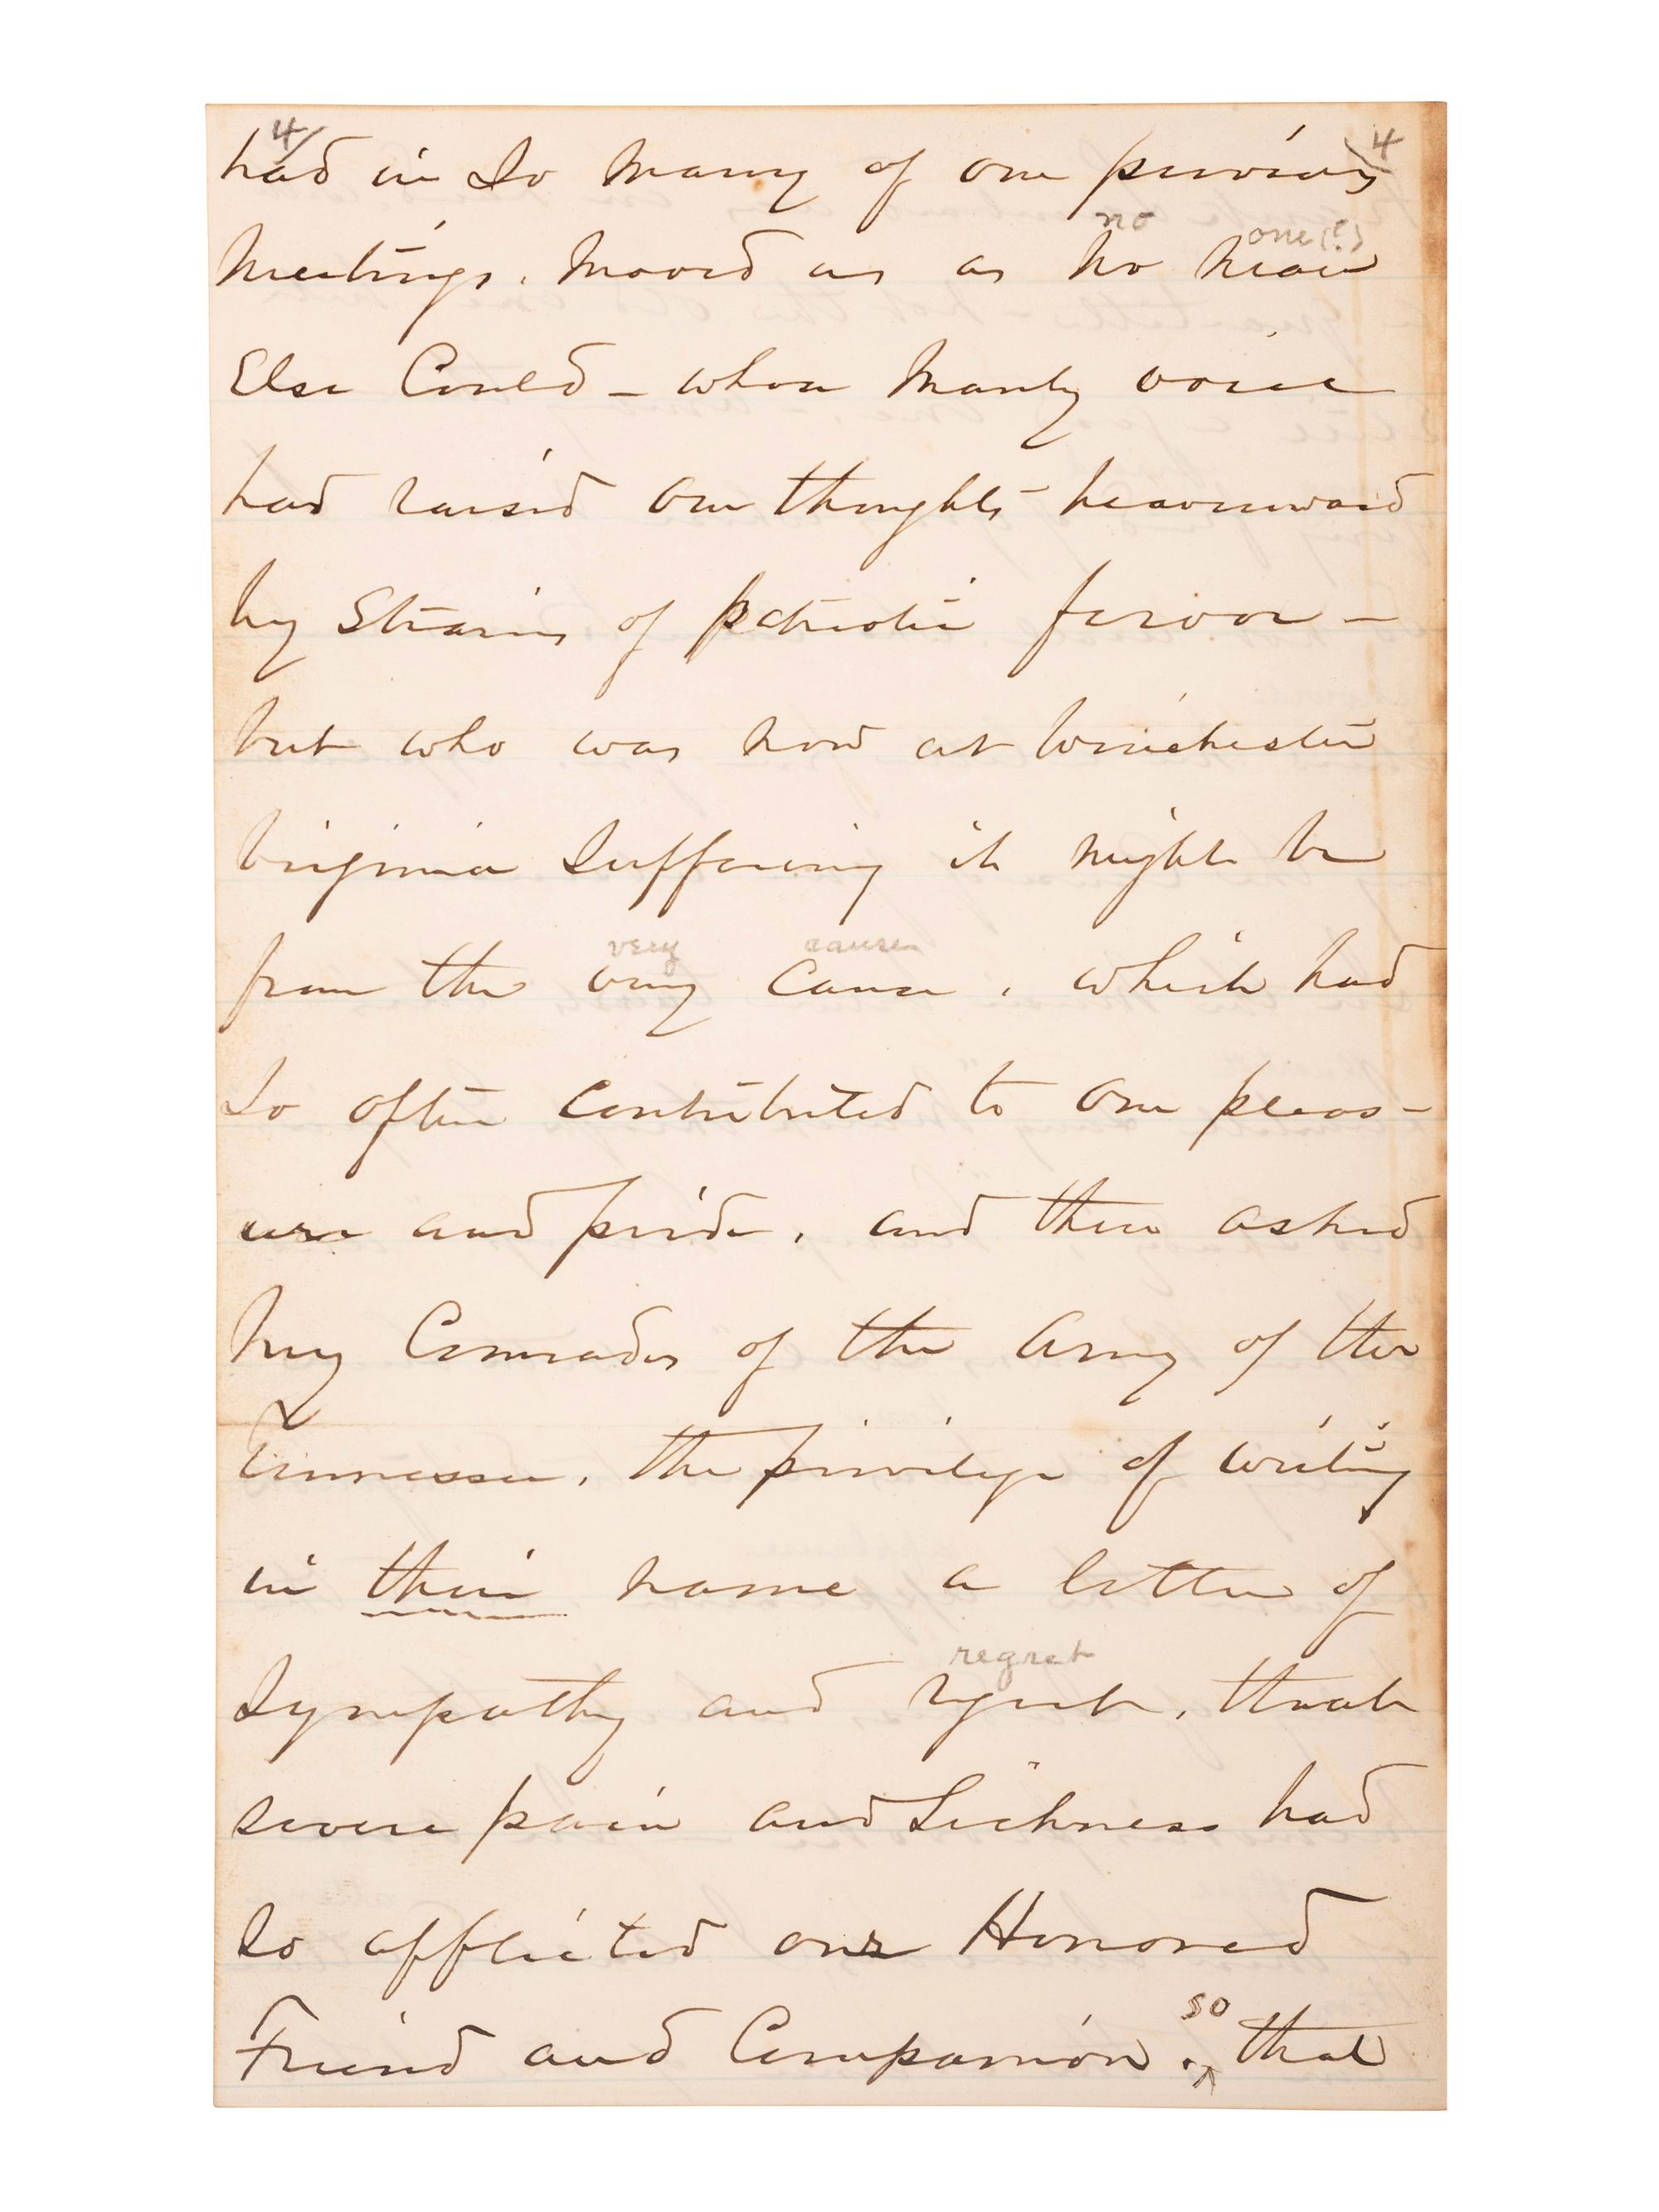 4 4
had in So many of our previous
no one(?)
meetings, moved us as no man
Else Could - whose Manly voice
had raised our thoughts heavenward
by Strains of patriotic fervor -
but who was now at Winchester
Virginia Suffering it might be
very cause
from the very Cause, which had
So often Contributed to our pleas-
ure and pride, and then asked
my Comrades of the Army of the
Tennessee, the privilege of writing
in their name a letter of
regret
Sympathy and regret, that
severe pain and Sickness had
So afflicted our Honored
so
Friend and Companion, that